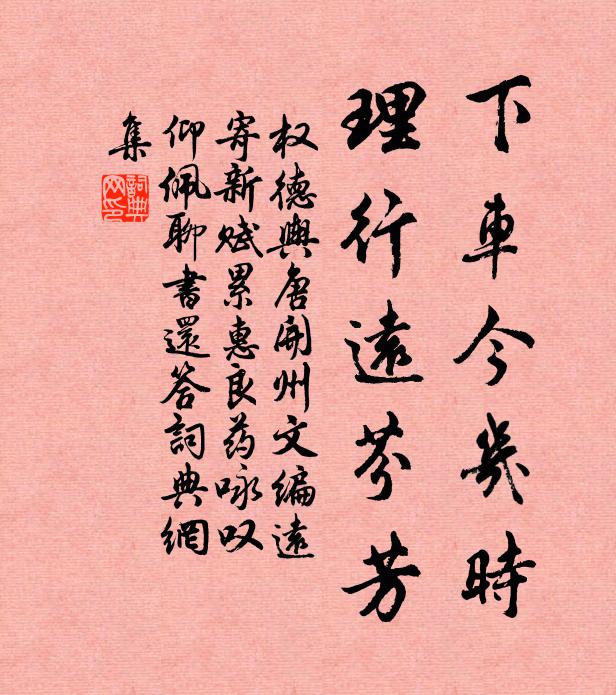 下車今幾時
理行遠芬芳
权德輿唐開州文編遠
寄新赋累惠良药咏叹
仰佩聊書還答詞典網
集
詞典网印